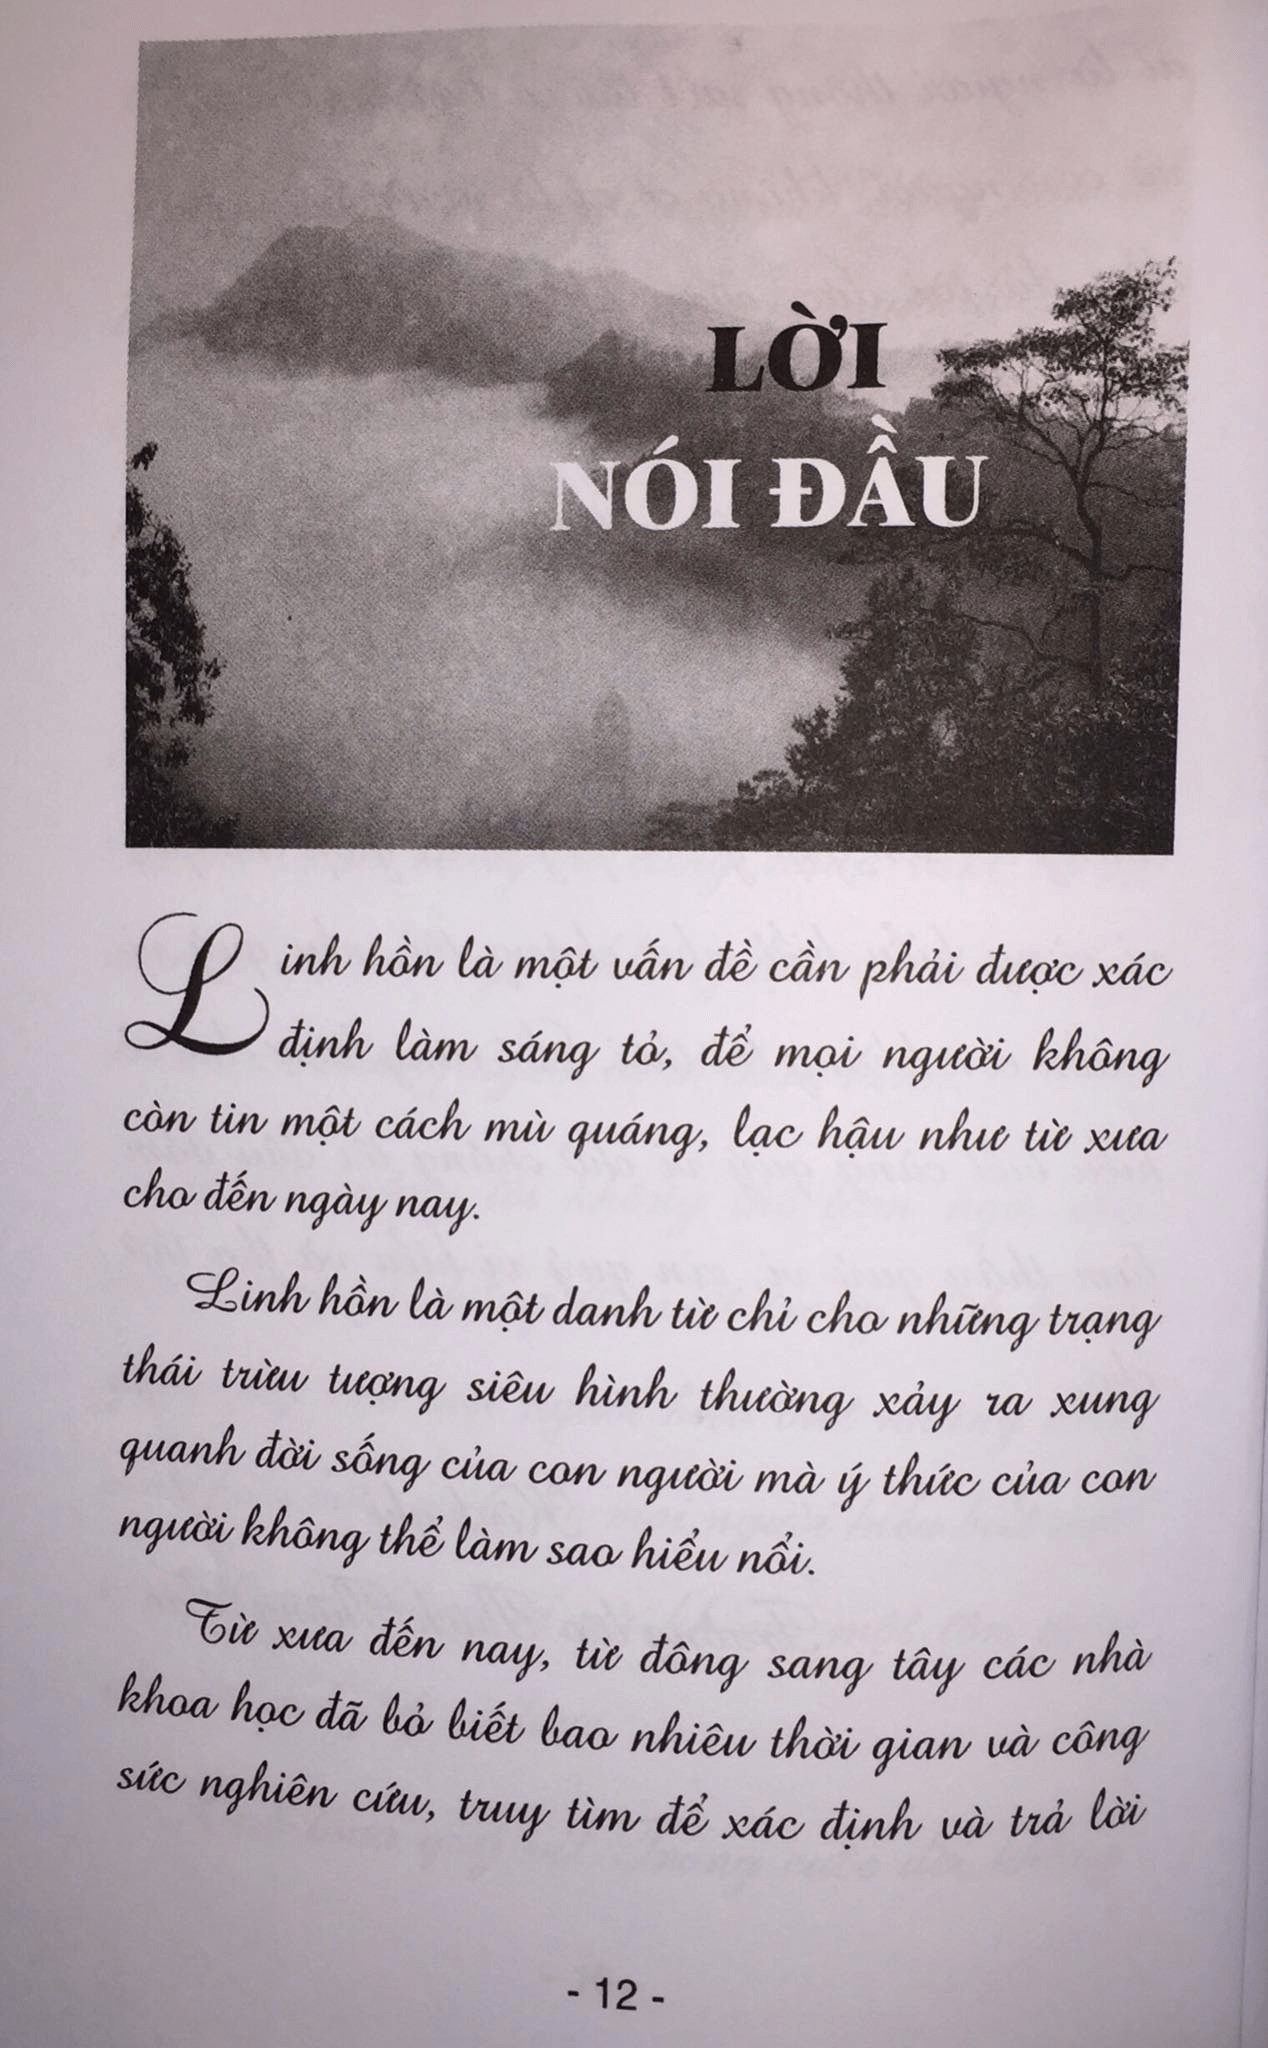 LỜI
NÓI ĐẦU
Linh hồn là một vấn đề cần phải được xác
định làm sáng tỏ, để mọi người không
còn tin một cách mù quáng, lạc hậu như từ xưa
cho đến ngày nay.
Linh hồn là một danh từ chỉ cho những trạng
thái trừu tượng siêu hình thường xảy ra xung
quanh đời sống của con người mà ý thức của con
người không thể làm sao hiểu nổi.
Từ xưa đến nay, từ đông sang tây các nhà
khoa học đã bỏ biết bao nhiêu thời gian và công
sức nghiên cứu, truy tìm để xác định và trả lời
- 12 -